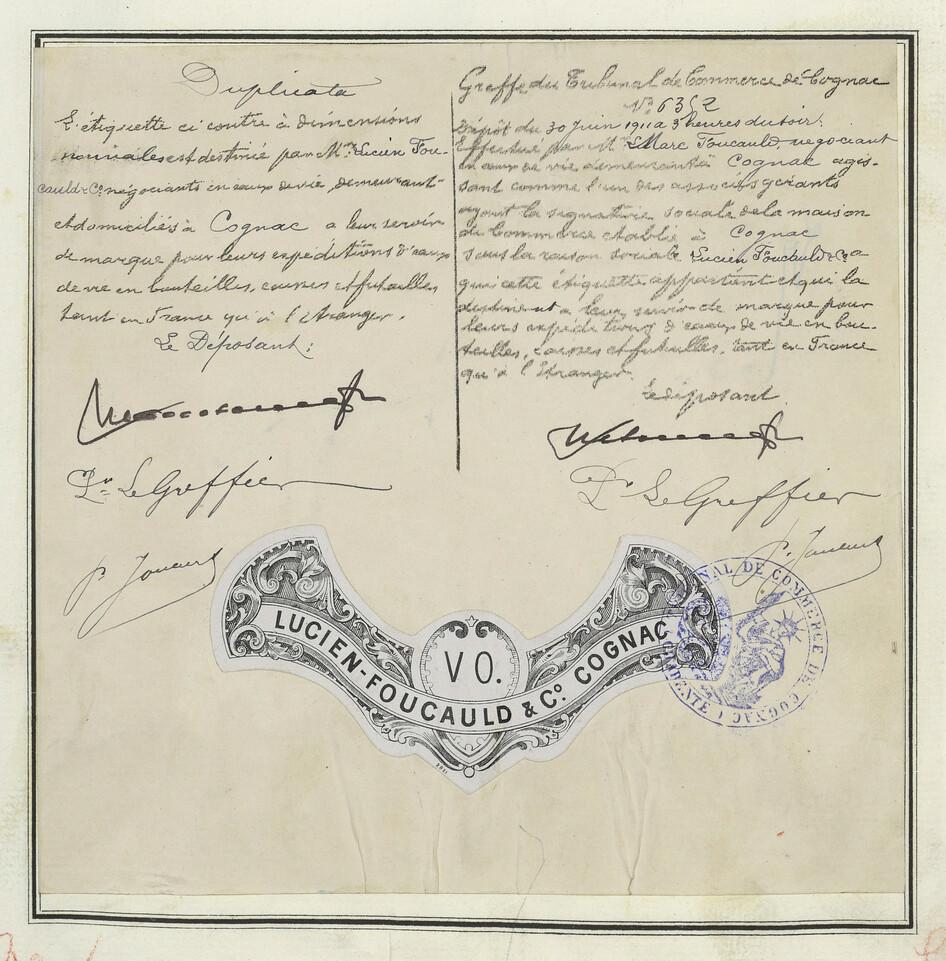 Duplicata
L'étiquette ci contre à dimensions
est destiné par Mrs Lucien Fou-
cauld & Co négociants en eaux de vie, demeurant
et domiciliés à Cognac a leur servir
de marque pour leurs expéditions d'eaux
de vie en bouteilles, caisses et futailles
tant en France qu'à l'étranger.
Le Déposant:
Pr Le Greffier
Greffe du Tribunal de Commerce de Cognac
No 6352
Dépôt du 30 Juin 1911 a 3 heures du soir.
Effectué par Mr Marc Foucauld, négociant
en eaux de vie demeurant à Cognac agis-
sant comme l'un des associés gérants
ayant la signature sociale de la maison
de Commerce etablie à Cognac
sous la raison sociale Lucien Foucauld & Co a
qui cette étiquette appartient et qui la
destinent a leur servir de marque pour
leurs expéditions d'eaux de vie en bou-
teilles, caisses et futailles, tant en France
qu'à l'étranger.
Le déposant
Pr Le Greffier
LUCIEN-FOUCAULD & Co. COGNAC
VO.
TRIBUNAL DE COMMERCE DE COGNAC